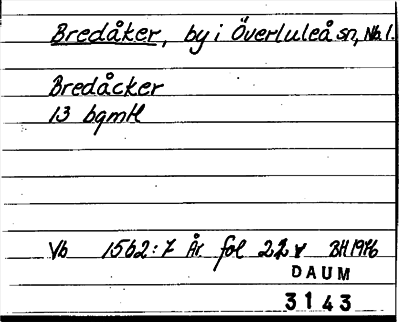 Bredåker, by i Överluleå sn, Nb l.
Bredåcker
13 bqmH
Vb 1562:7 År fol 22 v BH1976
DAUM
3143